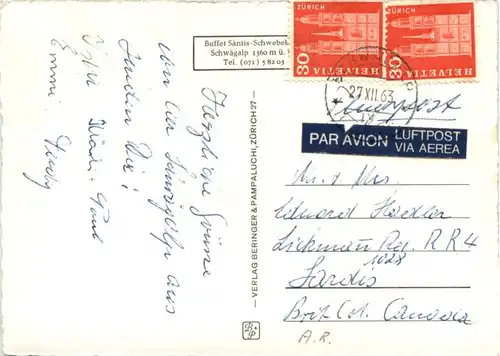 Buffet Säntis-Schwebeb
Schwägalp 1360 m ü.
Tel. (071) 5 82 03
Herzliche Grüsse
von der Schwägalp aus
senden Dir!
Paul
Emmi
VERLAG BERINGER & PAMPALUCHI, ZÜRICH 27
B+P
ZÜRICH
30
HELVETIA
ZÜRICH
30
HELVETIA
27 XII. 63
Luftpost
PAR AVION
LUFTPOST
VIA AEREA
Mr + Mrs.
Eduard Hadler
Lickman Rg. R R 4
1028
Sardis
Brit. Col. Canada
A. R.